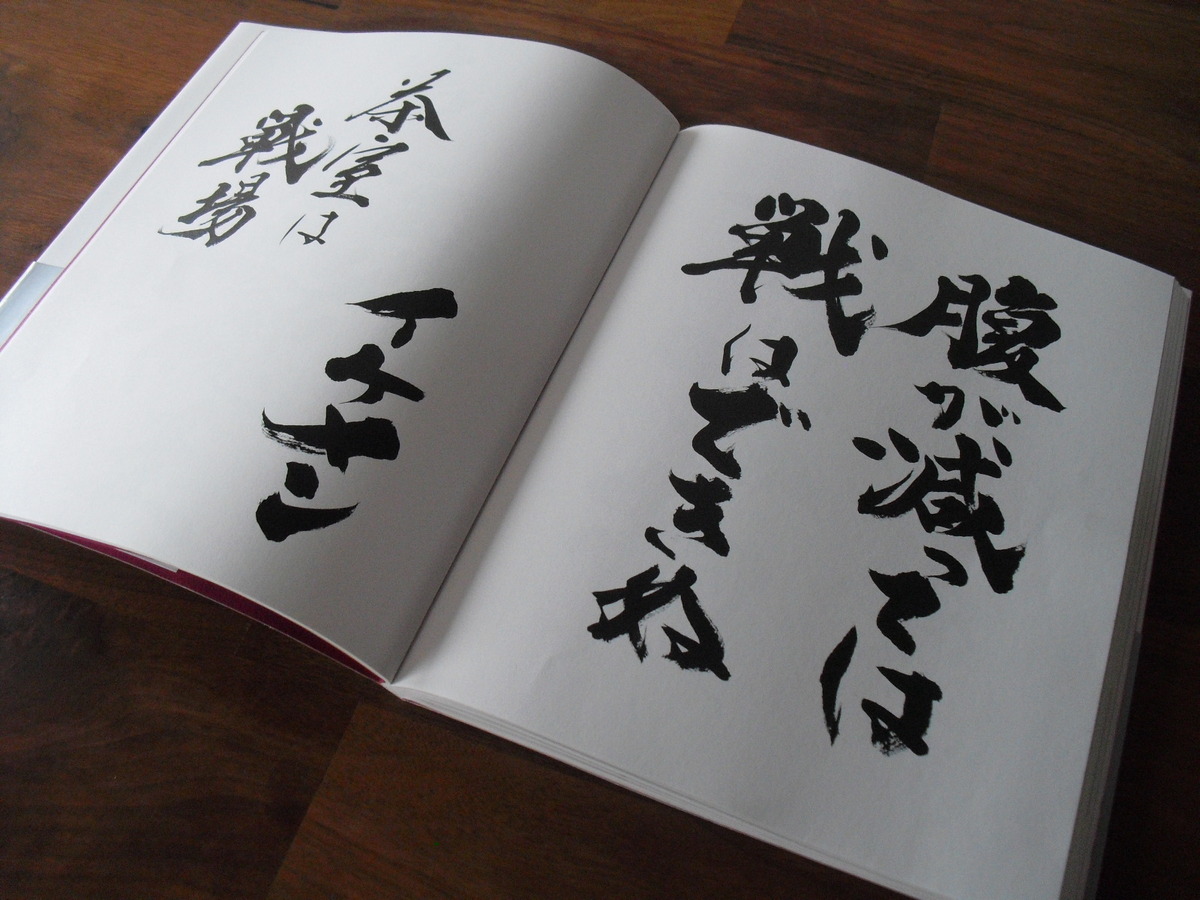 腹が減っては
戦はできぬ
茶室は
戦場